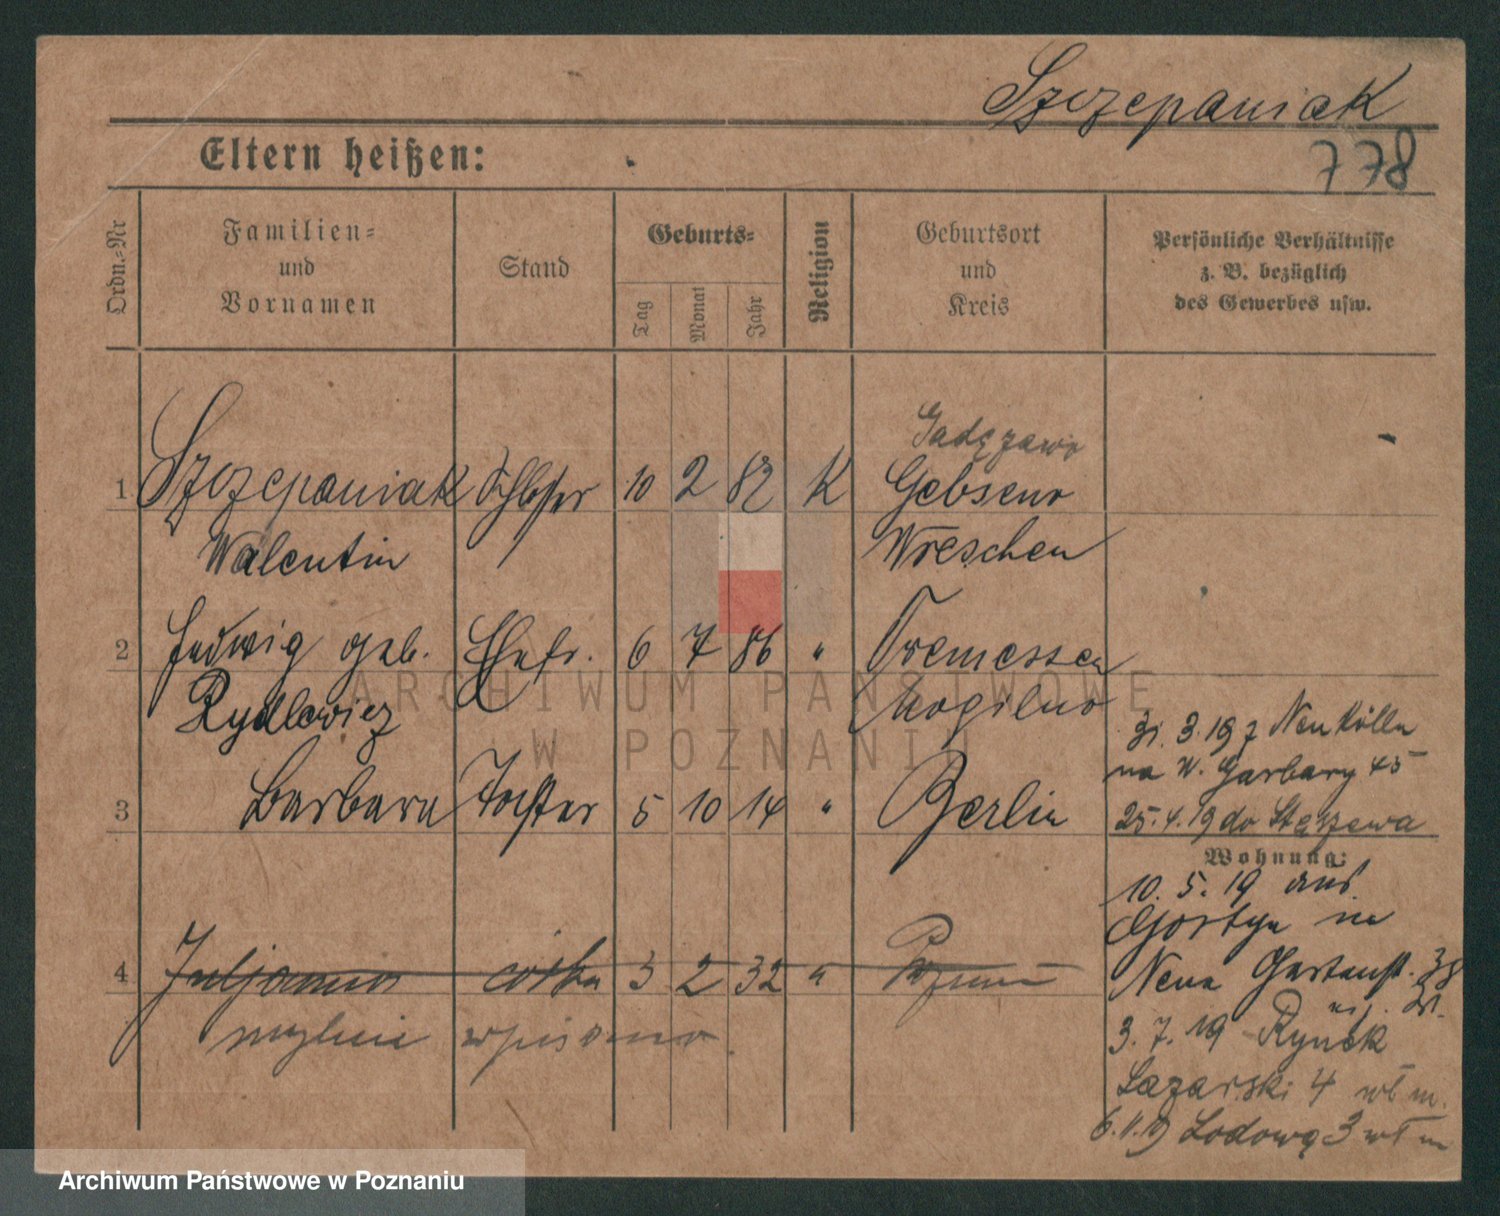 Szczepaniak
778
Eltern heißen:
Ordn.-Nr
Familien-
und
Vornamen
Stand
Geburts-
Tag
Monat
Jahr
Religion
Geburtsort
und
Kreis
Persönliche Verhältnisse
z. B. bezüglich
des Gewerbes usw.
1 Szczepaniak Schlosser 10 2 82 K Gebseno
Walentin Wreschen
2 Hedwig geb. Ehefr. 6 7 86 " Tremessen
Rydlewicz Mogilno
31. 3. 19 z Neukölln
na W. Garbary 45
3 Barbara Tochter 5 10 14 " Berlin
25.4.19 do Stęszewa
Wohnung:
10. 5. 19 aus
Gostyn in
4 Juljanna córka 3 2 32 " Poznań
Neue Gartenst.
mylnie wpisano
3. 7. 19 Rynek
Łazarski 4 wł m.
6.11.19 Lodowa 3 wł m
ARCHIWUM PAŃSTWOWE
W POZNANIU
Archiwum Państwowe w Poznaniu